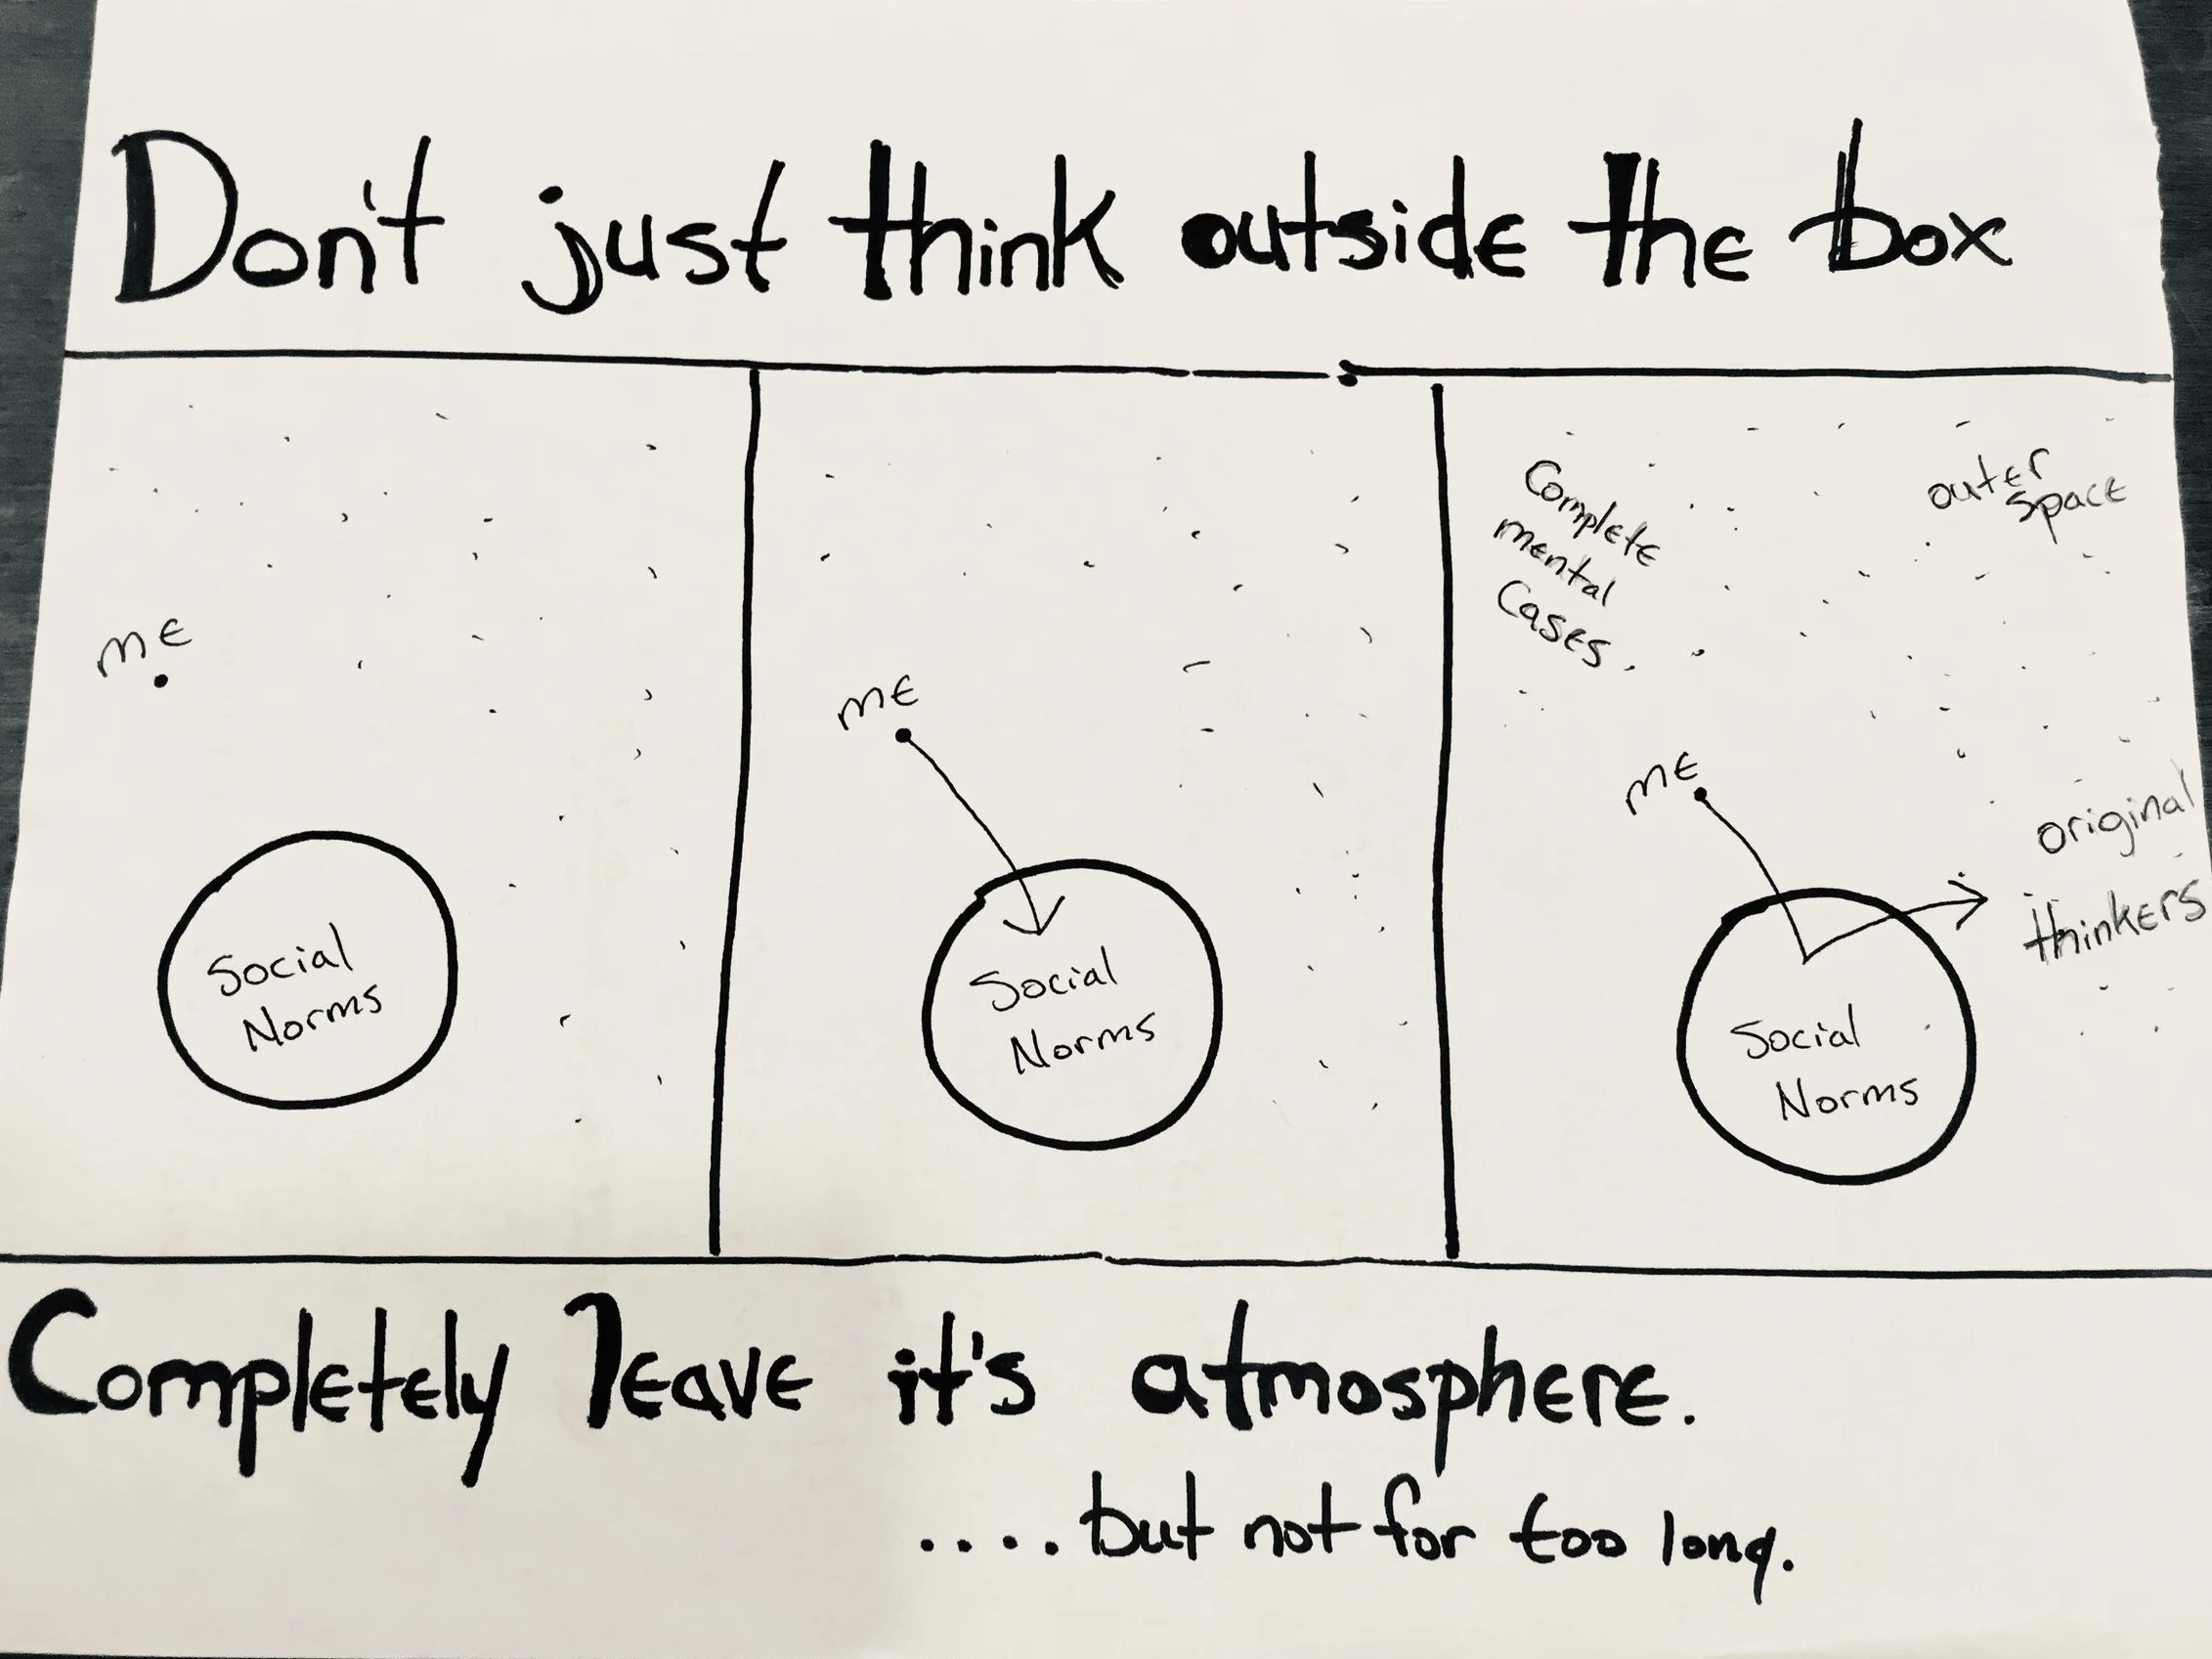 Don't just think outside the box
me
Social
Norms
me
Social
Norms
Complete
mental
Cases
outer
space
me
original
thinkers
Social
Norms
Completely leave it's atmosphere.
....but not for too long.